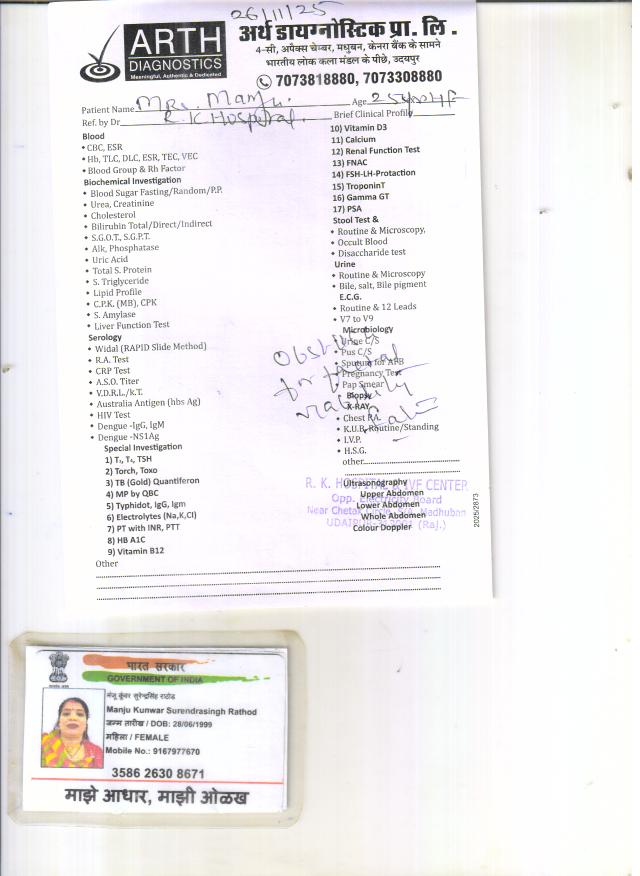 26/11/25
ARTH
DIAGNOSTICS
Meaningful, Authentic & Dedicated
अर्थ डायग्नोस्टिक प्रा. लि.
4-सी, अपैक्स चेम्बर, मधुबन, केनरा बैंक के सामने
भारतीय लोक कला मंडल के पीछे, उदयपुर
7073818880, 7073308880
Patient Name Mrs. Manju. Age 25yrs/F
Ref. by Dr R.K Hospital. Brief Clinical Profile
Blood
CBC, ESR
Hb, TLC, DLC, ESR, TEC, VEC
Blood Group & Rh Factor
Biochemical Investigation
Blood Sugar Fasting/Random/P.P.
Urea, Creatinine
Cholesterol
Bilirubin Total/Direct/Indirect
S.G.O.T., S.G.P.T.
Alk, Phosphatase
Uric Acid
Total S. Protein
S. Triglyceride
Lipid Profile
C.P.K. (MB), CPK
S. Amylase
Liver Function Test
Serology
Widal (RAPID Slide Method)
R.A. Test
CRP Test
A.S.O. Titer
V.D.R.L./k.T.
Australia Antigen (hbs Ag)
HIV Test
Dengue -IgG, IgM
Dengue -NS1Ag
Special Investigation
1) T₃, T₄, TSH
2) Torch, Toxo
3) TB (Gold) Quantiferon
4) MP by QBC
5) Typhidot, IgG, Igm
6) Electrolytes (Na,K,Cl)
7) PT with INR, PTT
8) HB A1C
9) Vitamin B12
Other
10) Vitamin D3
11) Calcium
12) Renal Function Test
13) FNAC
14) FSH-LH-Protaction
15) TroponinT
16) Gamma GT
17) PSA
Stool Test &
Routine & Microscopy,
Occult Blood
Disaccharide test
Urine
Routine & Microscopy
Bile, salt, Bile pigment
E.C.G.
Routine & 12 Leads
V7 to V9
Microbiology
Urine C/S
Pus C/S
Sputum for AFB
Pregnancy Test
Pap Smear
Biopsy
X-RAY
Chest P.A.
K.U.B. Routine/Standing
I.V.P.
H.S.G.
other
Obstetric
for foetal
viability
Ultrasonography
Upper Abdomen
Lower Abdomen
Whole Abdomen
Colour Doppler
R. K. HOSPITAL & IVF CENTER
Opp. Electricity Board
Near Chetak Circle, Madhuban
UDAIPUR-313001 (Raj.)
2025/2873
भारत सरकार
GOVERNMENT OF INDIA
मंजू कुंवर सुरेन्द्रसिंह राठोड
Manju Kunwar Surendrasingh Rathod
जन्म तारीख / DOB: 28/06/1999
महिला / FEMALE
Mobile No.: 9167977670
3586 2630 8671
माझे आधार, माझी ओळख